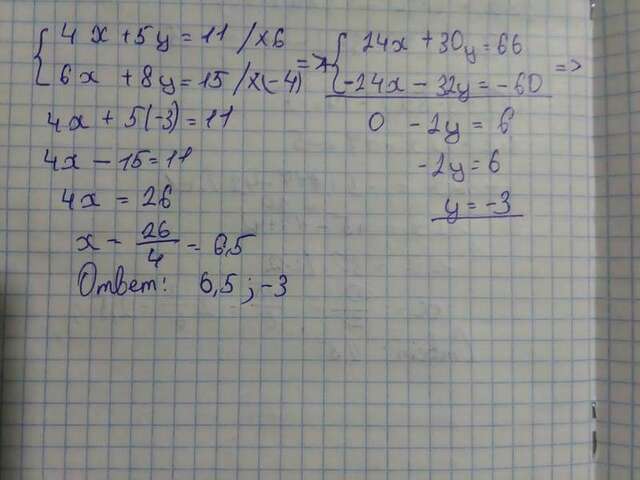 4x + 5y = 11 / x6
6x + 8y = 15 / x(-4)
=>
24x + 30y = 66
-24x - 32y = -60
=>
0 - 2y = 6
-2y = 6
y = -3
4x + 5(-3) = 11
4x - 15 = 11
4x = 26
x - 26/4 = 6,5
Ответ: 6,5 ; -3